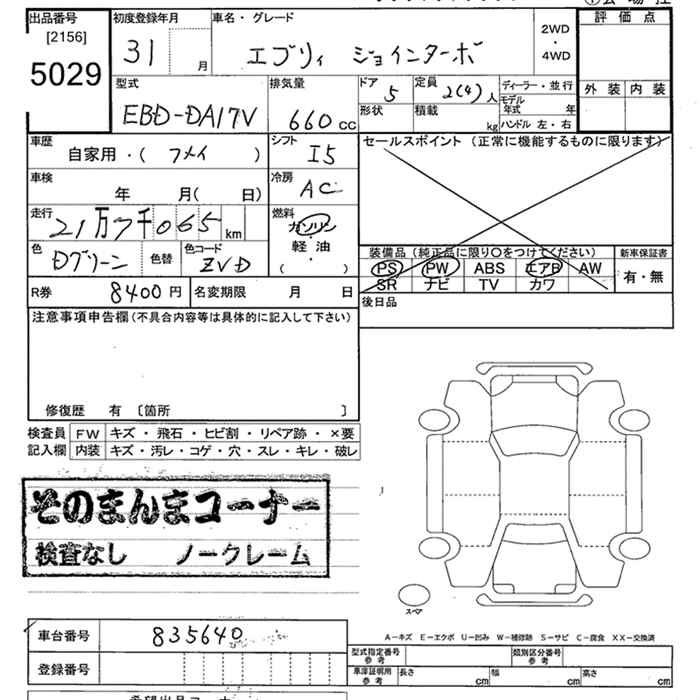 出品番号 初度登録年月 車名・グレード 評価点
[2156]
5029
31 月 エブリィ ジョインターボ 2WD・4WD
外装 内装
型式 排気量 ドア 定員 ディーラー・並行
EBD-DA17V 660cc 5 2(4)人 モデル年式 年
形状 積載 kg ハンドル 左・右
車歴 自家用・( ) シフト I5 セールスポイント(正常に機能するものに限ります)
車検 年 月( 日) 冷房 AC
走行 21万7千065km 燃料 ガソリン
軽・油
( ・ )
色 Dグリーン 色替 色コード ZVD
装備品(純正品に限り○をつけてください) 新車保証書
PS PW ABS エアB AW 有・無
SR ナビ TV カワ
R券 8400円 名変期限 月 日 後日品
注意事項申告欄(不具合内容等は具体的に記入して下さい)
修復歴 有 〔箇所 〕
検査員 FW キズ・飛石・ヒビ割・リペア跡・×要
記入欄 内装 キズ・汚レ・コゲ・穴・スレ・キレ・破レ
そのまんまコーナー
検査なし ノークレーム
スペア
車台番号 835640
A-キズ E-エクボ U-凹み W-補修跡 S-サビ C-腐食 XX-交換済
登録番号 型式指定番号 参考 類別区分番号 参考
車庫証明用 参考 長さ cm 幅 cm 高さ cm